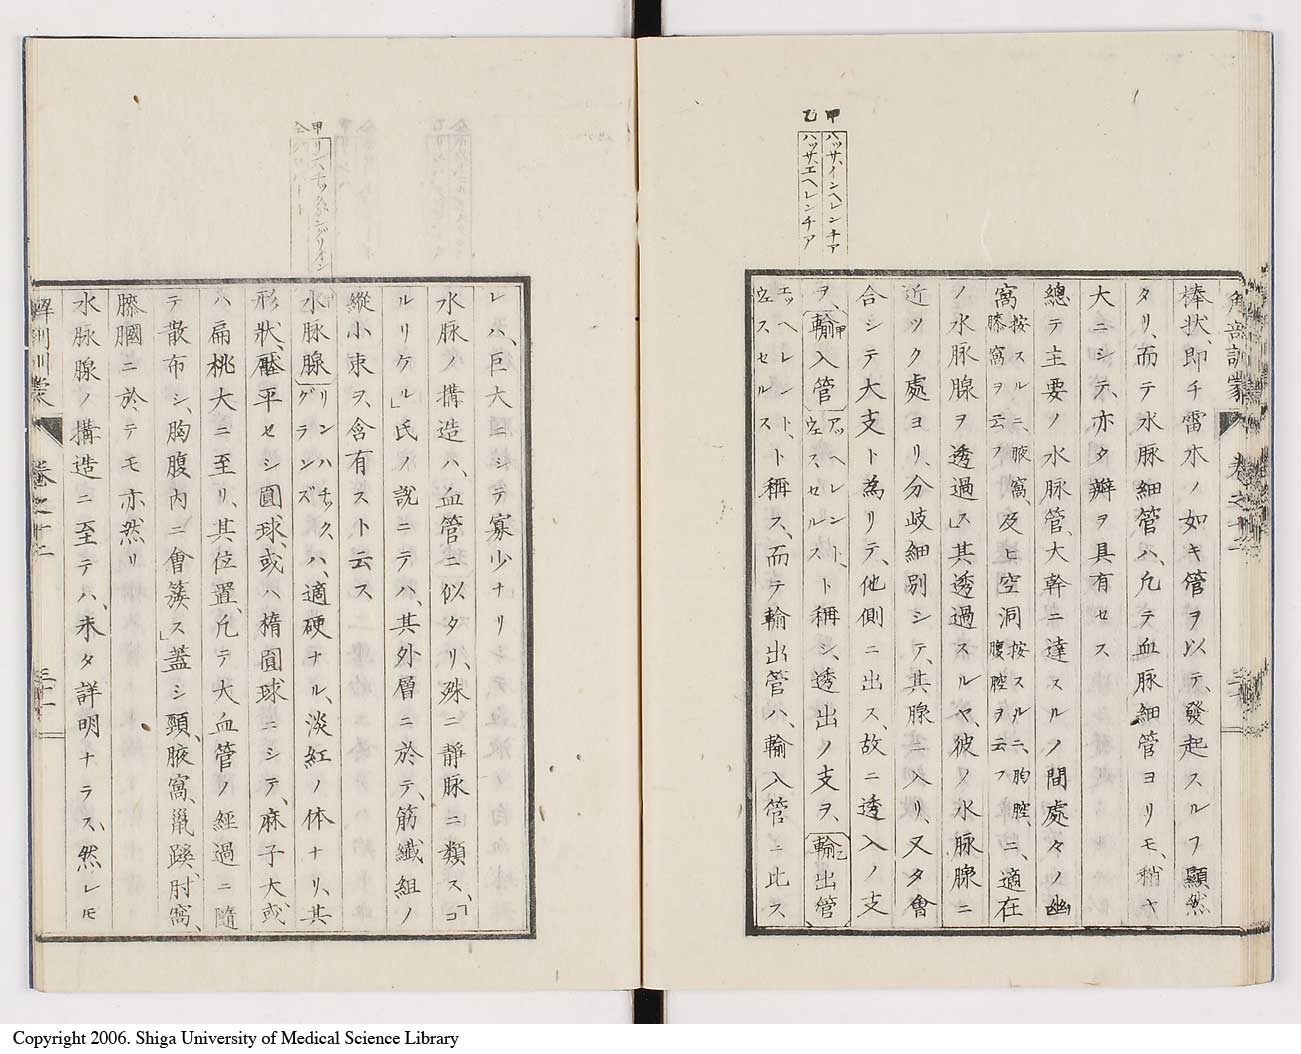 甲 ハッサ、インヘレンチア
乙 ハッサ、エヘレンチア
棒状、即チ雷木ノ如キ管ヲ以テ、發起スルヿ顯然
タリ、而テ水脉細管ハ、凢テ血脉細管ヨリモ、稍ヤ
大ニシテ、亦タ瓣ヲ具有セス
總テ主要ノ水脉管、大幹ニ達スルノ間處々ノ幽
窩按スルニ、腋窩、膝窩ヲ云フ及ヒ空洞按スルニ、胸腔、腹腔ヲ云フニ、適在
ノ水脉腺ヲ透過ス」其透過スルヤ、彼ノ水脉腺ニ
近ツク處ヨリ、分歧細別シテ、其腺ニ入リ、又タ會
合シテ大支ト為リテ、他側ニ出ス、故ニ透入ノ支
ヲ、甲輸入管アッヘレント、ウェス、セルスト稱シ、透出ノ支ヲ、乙輸出管
エッヘレント、ウェスセルスト稱ス、而テ輸出管ハ、輸入管ニ比ス
解剖訓蒙 卷之十二
甲 リンハチック、グランヅリイン
レハ、巨大ニシテ寡少ナリ
水脉ノ搆造ハ、血管ニ似タリ、殊ニ靜脉ニ類ス、「コ
ルリケル」氏ノ説ニテハ、其外層ニ於テ、筋纎組ノ
縱小束ヲ、含有スト云ス
甲水脉腺リンハチック、グランズハ、適硬ナル、淡紅ノ体ナリ、其
形狀、壓平セシ圓球、或ハ楕圓球ニシテ、麻子大、或
ハ扁桃大ニ至リ、其位置、凢テ大血管ノ經過ニ隨
テ散布シ、胸腹内ニ會簇ス」蓋シ頸、腋窩、鼠蹊、肘窩、
膝膕ニ於テモ亦然リ
水脉腺ノ搆造ニ至テハ、未タ詳明ナラス、然レㄊ
解剖訓蒙 卷之十二 三十一
Copyright 2006. Shiga University of Medical Science Library